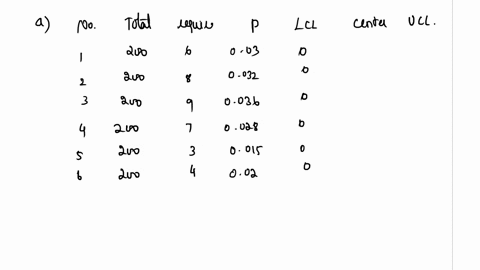 a) No. Total require p LCL center UCL.
1 200 6 0.03 0
2 200 8 0.032 0
3 200 9 0.036 0
4 200 7 0.028 0
5 200 3 0.015 0
6 200 4 0.02 0